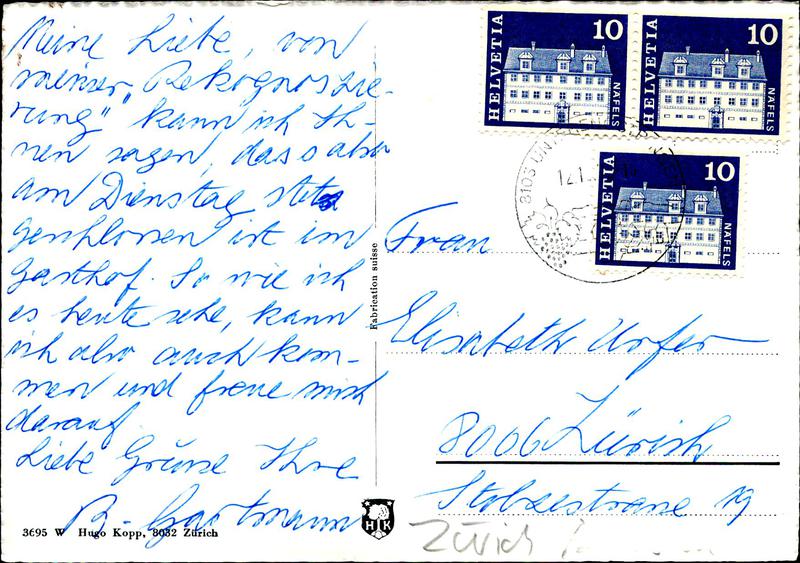 Meine Liebe, von
meiner „Rekognoszie-
rung" kann ich Ih-
nen sagen, dass also
am Dienstag stets
geschlossen ist im
Gasthof. So wie ich
es heute sehe, kann
ich also auch kom-
men und freue mich
darauf.
Liebe Grüsse Ihre
B. Gartmann
3695 W Hugo Kopp, 8032 Zürich
Fabrication suisse
HK
HELVETIA 10 NÄFELS
HELVETIA 10 NÄFELS
HELVETIA 10 NÄFELS
8103 UN
12.1
Frau
Elisabeth Urfer
8006 Zürich
Stolzestrasse 19
Zürich